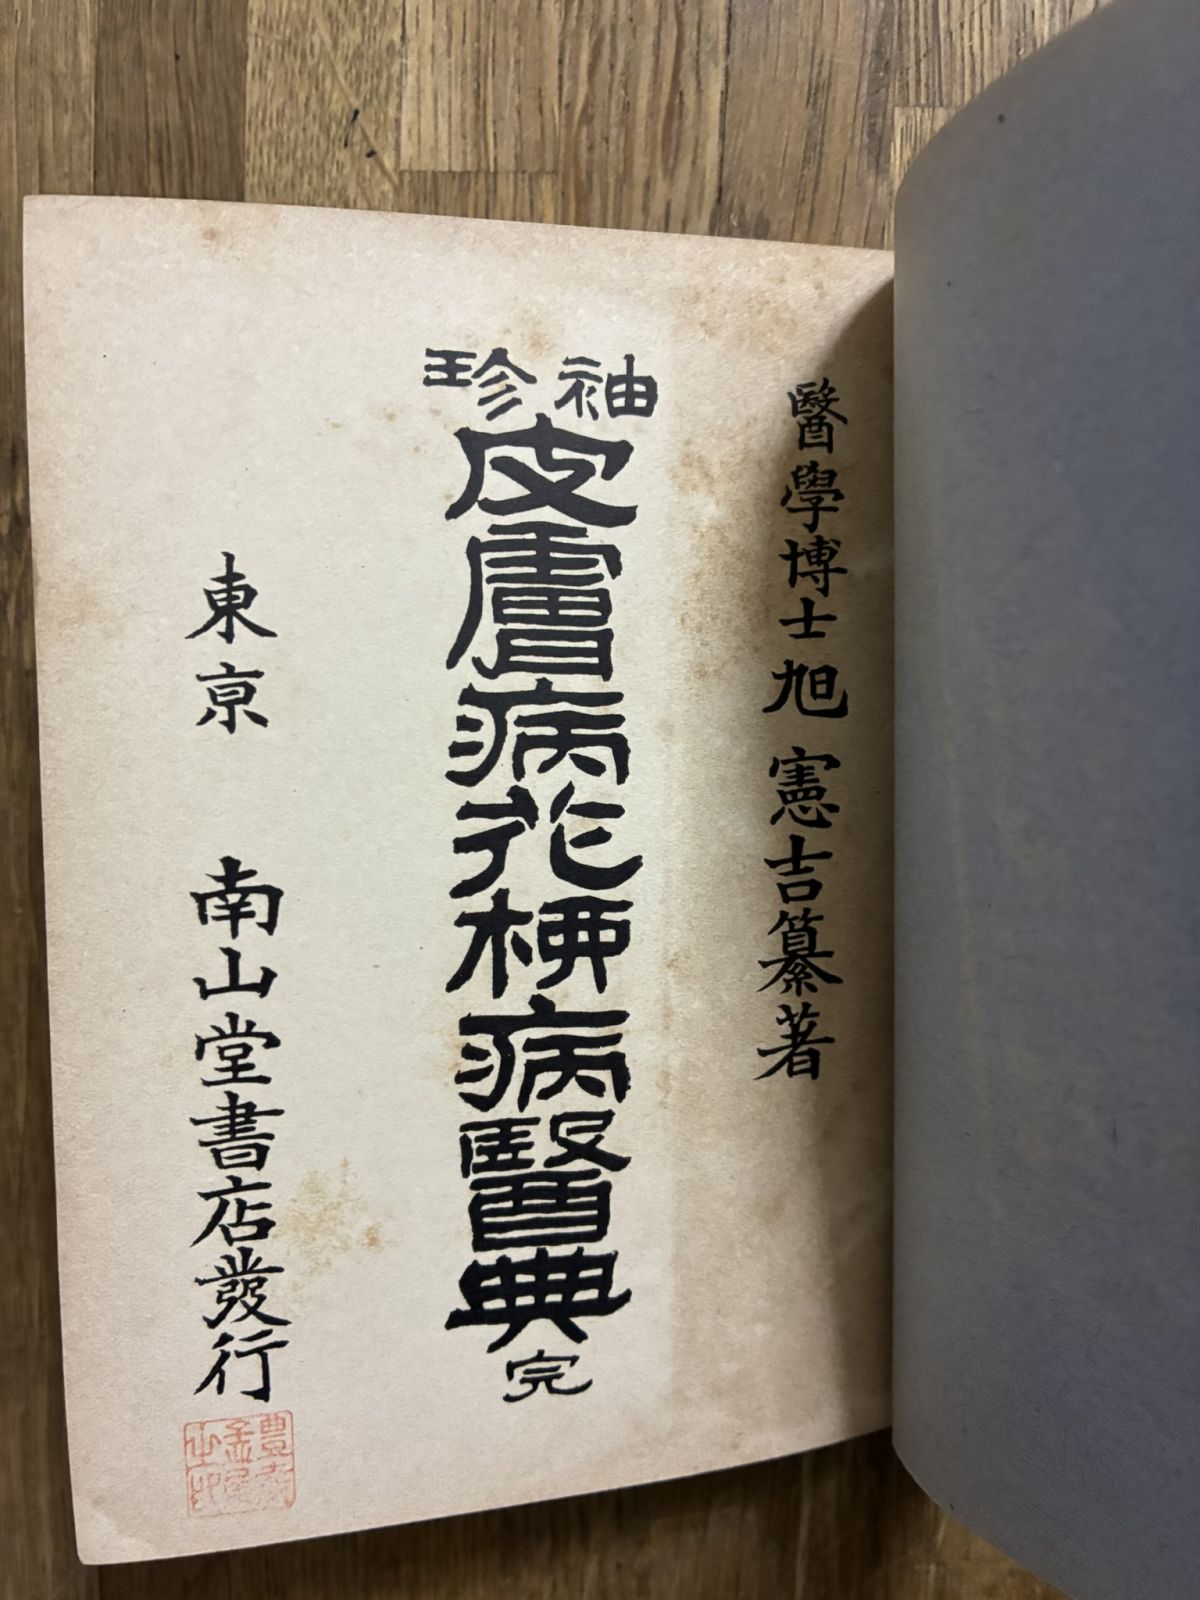 醫學博士 旭 憲吉纂著
袖珍
皮膚病花柳病醫典 完
東京 南山堂書店發行